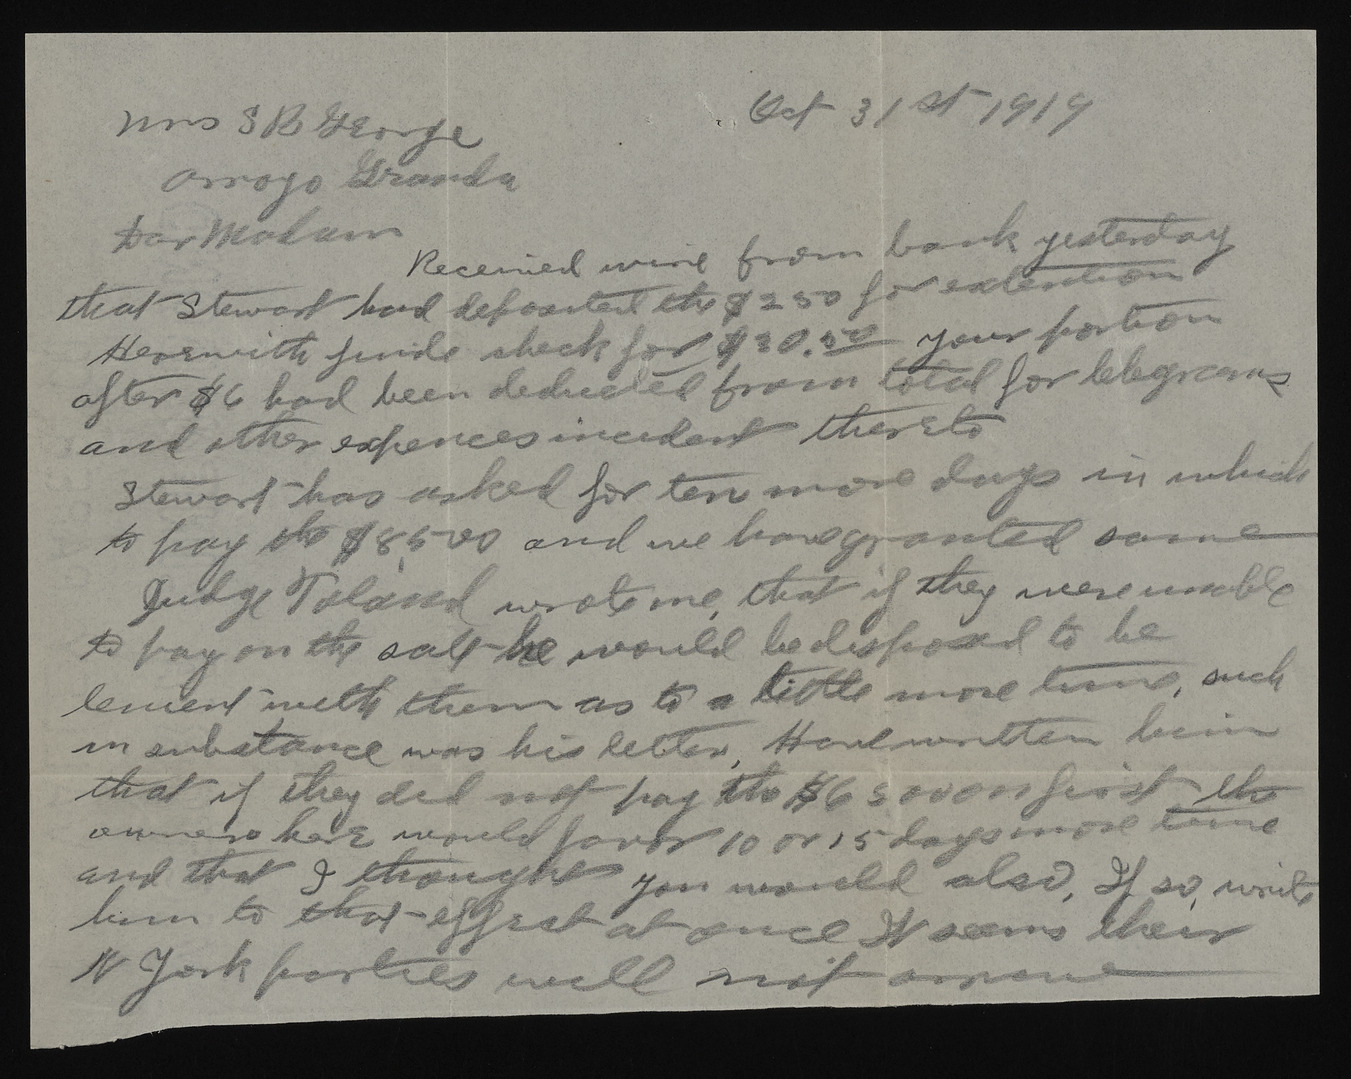 Oct 31st 1919
Mrs S B George
Arroyo Grande
Dear Madam
Received wire from bank yesterday
that Stewart had deposited the $250 for extention
Herewith finde check for $30.50 your portion
after $6 had been deducted from total for telegrams
and other expences incedent thereto
Stewart has asked for ten more days in which
to pay the $8,500 and we have granted same
Judge Toland wrote me, that if they were unable
to pay on the he would be disposed to be
lenient with them as to a little more time, such
in substance was his letter, Have written him
that if they did not pay the $6500 on first the
owners here would favor 10 or 15 days more time
and that I thought you would also, If so, write
him to that effect at once It seems their
N York parties will not